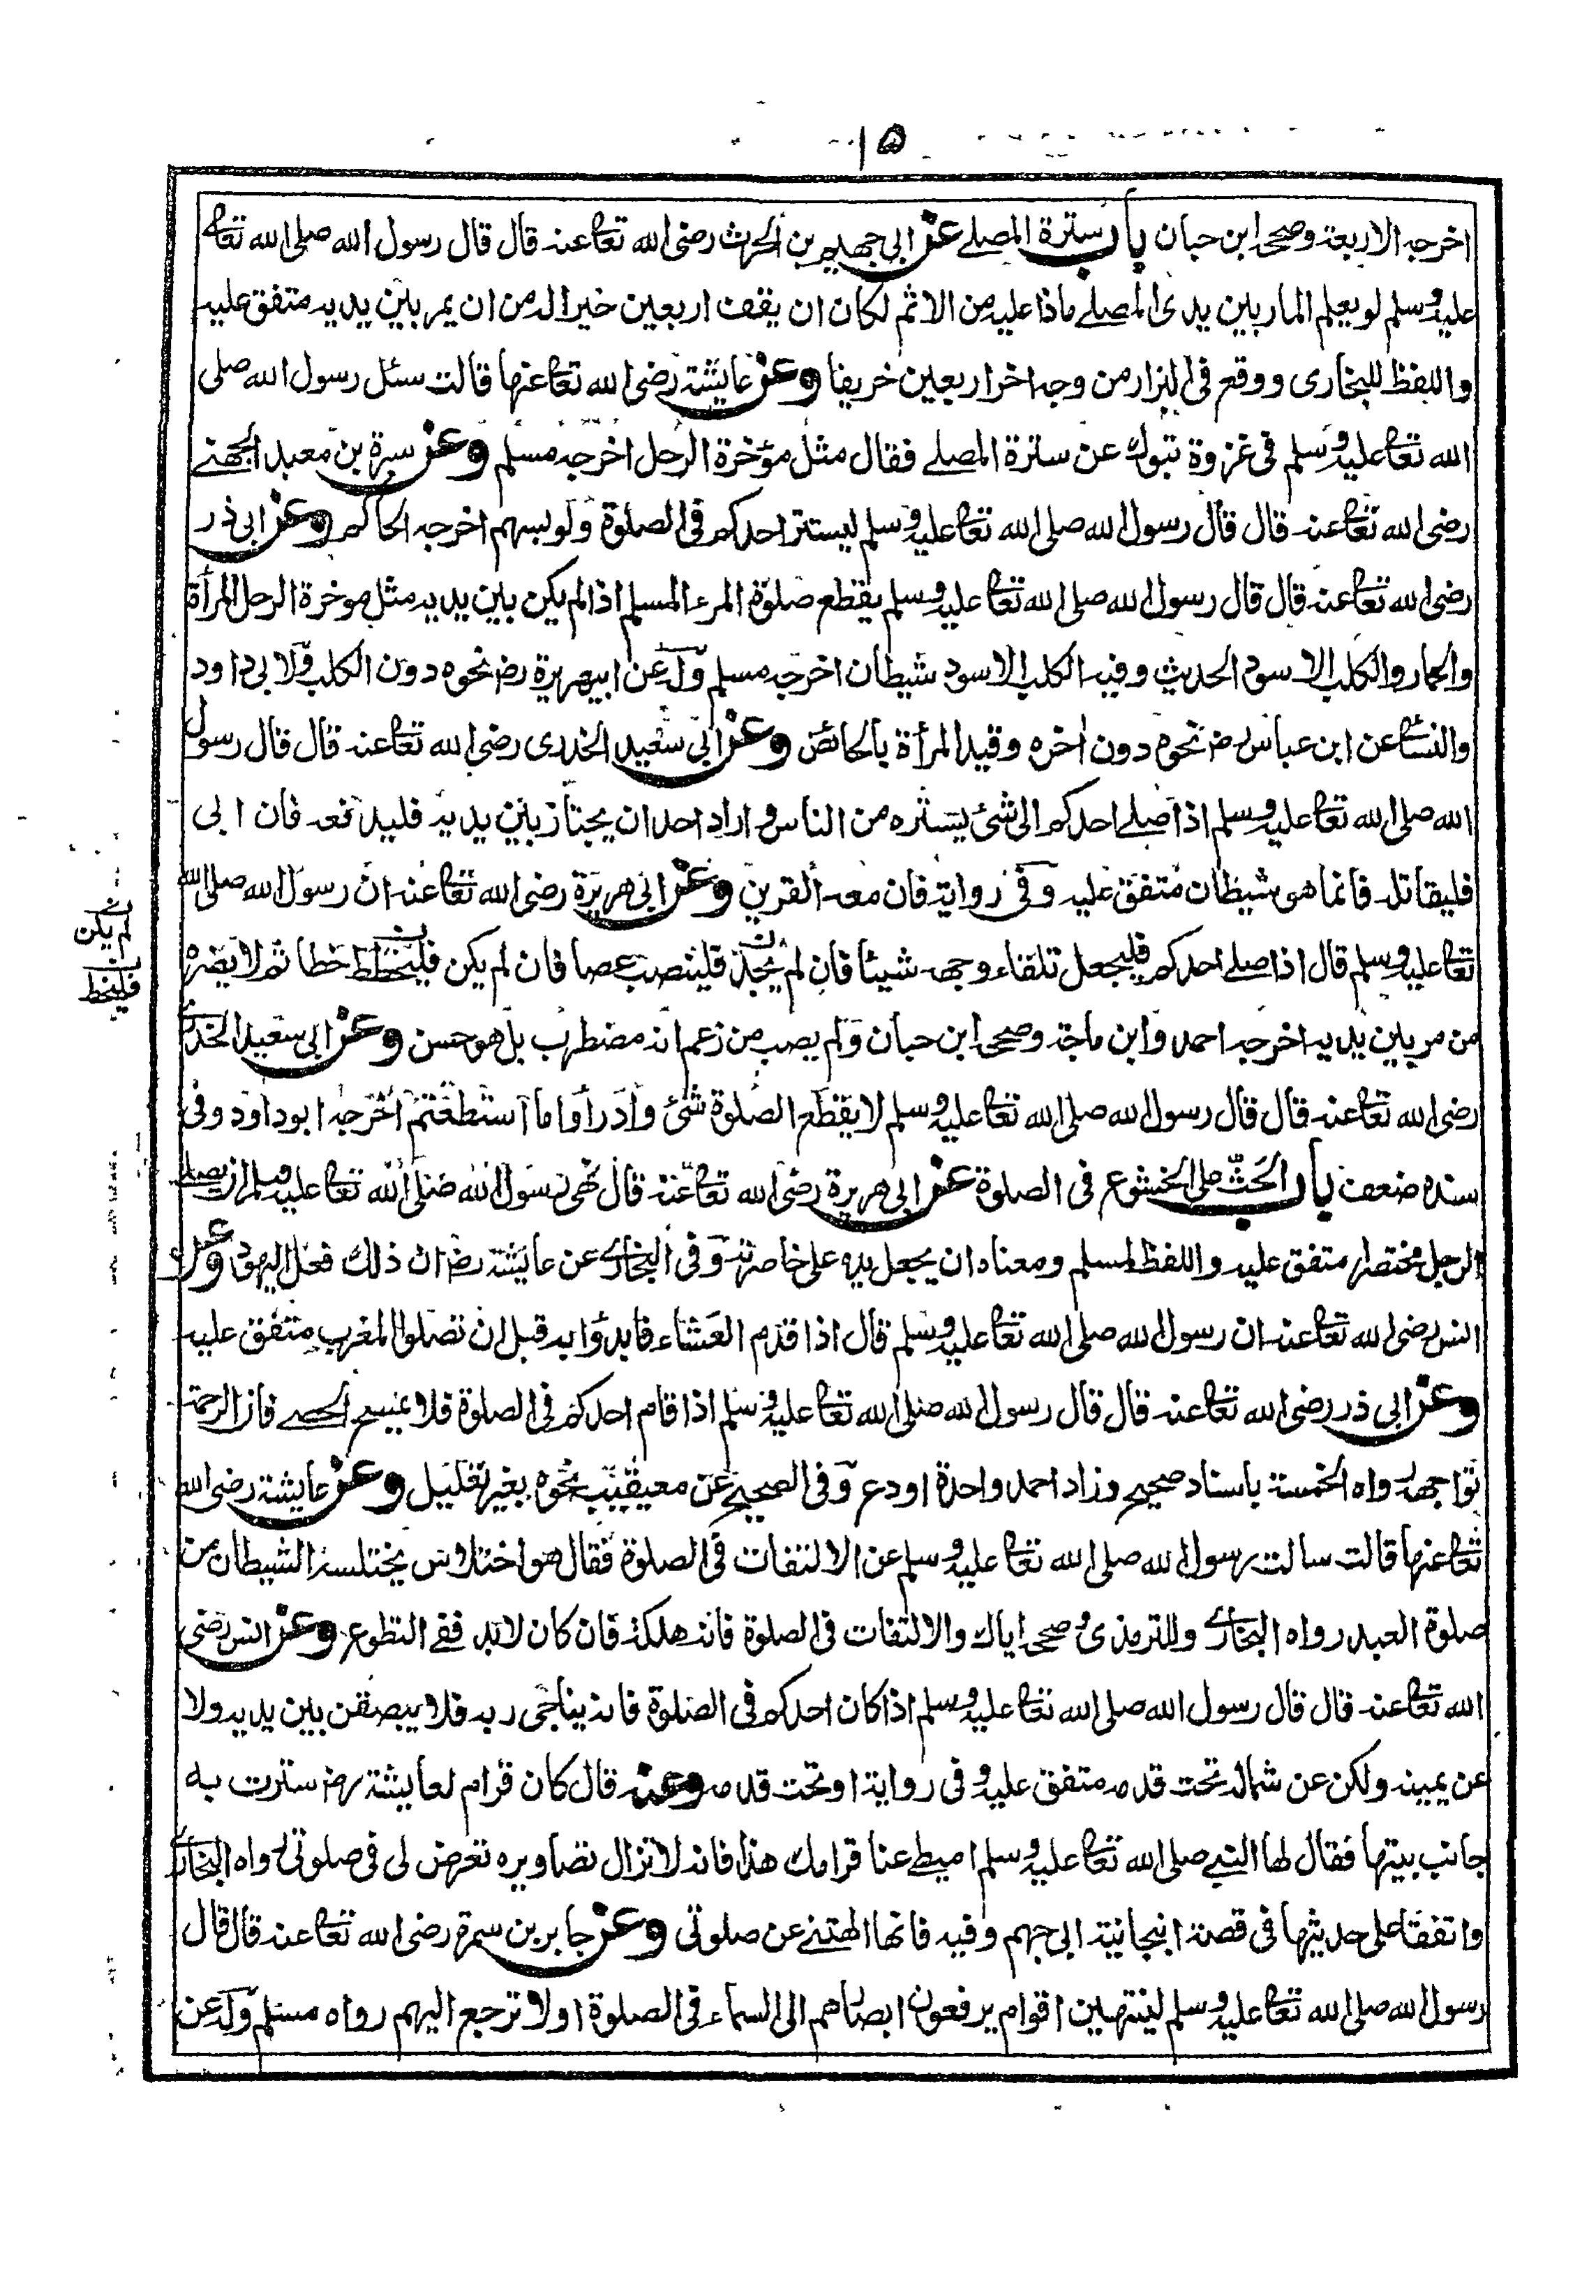 ١٥
اخرجه الاربعة وصححه ابن حبان باب سترة المصلے عن ابى جهيم بن الحرث رضى الله تعالى عنه قال قال رسول الله صلى الله تعالى
عليه وسلم لو يعلم المار بين يدى المصلے ماذا عليه من الاثم لكان ان يقف اربعين خيرا له من ان يمر بين يديه متفق عليه
واللفظ للبخارى ووقع فى البزار من وجه اخر اربعين خريفا وعن عايشة رضى الله تعالى عنها قالت سئل رسول الله صلى
الله تعالى عليه وسلم فى غزوة تبوك عن سترة المصلے فقال مثل مؤخرة الرحل اخرجه مسلم وعن سبرة بن معبد الجهنے
رضى الله تعالى عنه قال قال رسول الله صلى الله تعالى عليه وسلم ليستتر احدكم فى الصلوة ولو بسهم اخرجه الحاكم وعن ابى ذر
رضى الله تعالى عنه قال قال رسول الله صلى الله تعالى عليه وسلم يقطع صلوة المرء المسلم اذا لم يكن بين يديه مثل موخرة الرحل المرأة
والحمار والكلب الاسود الحديث وفيه الكلب الاسود شيطان اخرجه مسلم وله عن ابيهريرة رض نحوه دون الكلب ولابى داود
والنسائى عن ابن عباس رض نحوه دون اخره وقيد المرأة بالحائض وعن ابى سعيد الخدرى رضى الله تعالى عنه قال قال رسول
الله صلى الله تعالى عليه وسلم اذا صلے احدكم الى شئ يستره من الناس واراد احد ان يجتاز بين يديه فليدفعه فان ابى
فليقاتله فانما هو شيطان متفق عليه وفى رواية فان معه القرين وعن ابى هريرة رضى الله تعالى عنه ان رسول الله صلى الله
تعالى عليه وسلم قال اذا صلے احدكم فليجعل تلقاء وجهه شيئا فان لم يجد فلينصب عصا فان لم يكن فليخطط خطا ثم لا يضره
لم يكن
فليخط
من مر بين يديه اخرجه احمد وابن ماجة وصححه ابن حبان ولم يصب من زعم انه مضطرب بل هو حسن وعن ابى سعيد الخدرى
رضى الله تعالى عنه قال قال رسول الله صلى الله تعالى عليه وسلم لا يقطع الصلوة شئ وادرأوا ما استطعتم اخرجه ابو داود وفى
سنده ضعف باب الحث على الخشوع فى الصلوة عن ابى هريرة رضى الله تعالى عنه قال نهى رسول الله صلى الله تعالى عليه وسلم ان يصلے
الرجل مختصرا متفق عليه واللفظ لمسلم ومعناه ان يجعل يده على خاصرته وفى البخارى عن عايشة رض ان ذلك فعل اليهود وعن
انس رضى الله تعالى عنه ان رسول الله صلى الله تعالى عليه وسلم قال اذا قدم العشاء فابدؤا به قبل ان تصلوا المغرب متفق عليه
وعن ابى ذر رضى الله تعالى عنه قال قال رسول الله صلى الله تعالى عليه وسلم اذا قام احدكم فى الصلوة فلا يمسح الحصے فان الرحمة
تواجهه رواه الخمسة باسناد صحيح وزاد احمد واحدة او دع وفى الصحيح عن معيقيب نحوه بغير تعليل وعن عايشة رضى الله
تعالى عنها قالت سالت رسول الله صلى الله تعالى عليه وسلم عن الالتفات فى الصلوة فقال هو اختلاس يختلسه الشيطان من
صلوة العبد رواه البخارى وللترمذى وصححه اياك والالتفات فى الصلوة فانه هلكة فان كان لابد ففے التطوع وعن انس رضى
الله تعالى عنه قال قال رسول الله صلى الله تعالى عليه وسلم اذا كان احدكم فى الصلوة فانه يناجى ربه فلا يبصقن بين يديه ولا
عن يمينه ولكن عن شماله تحت قدمه متفق عليه وفى رواية او تحت قدمه وعنه قال كان قرام لعايشة رض سترت به
جانب بيتها فقال لها النبے صلى الله تعالى عليه وسلم اميطے عنا قرامك هذا فانه لا تزال تصاويره تعرض لى فى صلوتى رواه البخارى
واتفقا على حديثها فى قصة انبجانية ابى جهم وفيه فانها الهتنے عن صلوتى وعن جابر بن سمرة رضى الله تعالى عنه قال قال
رسول الله صلى الله تعالى عليه وسلم لينتهين اقوام يرفعون ابصارهم الى السماء فى الصلوة او لا ترجع اليهم رواه مسلم وله عن